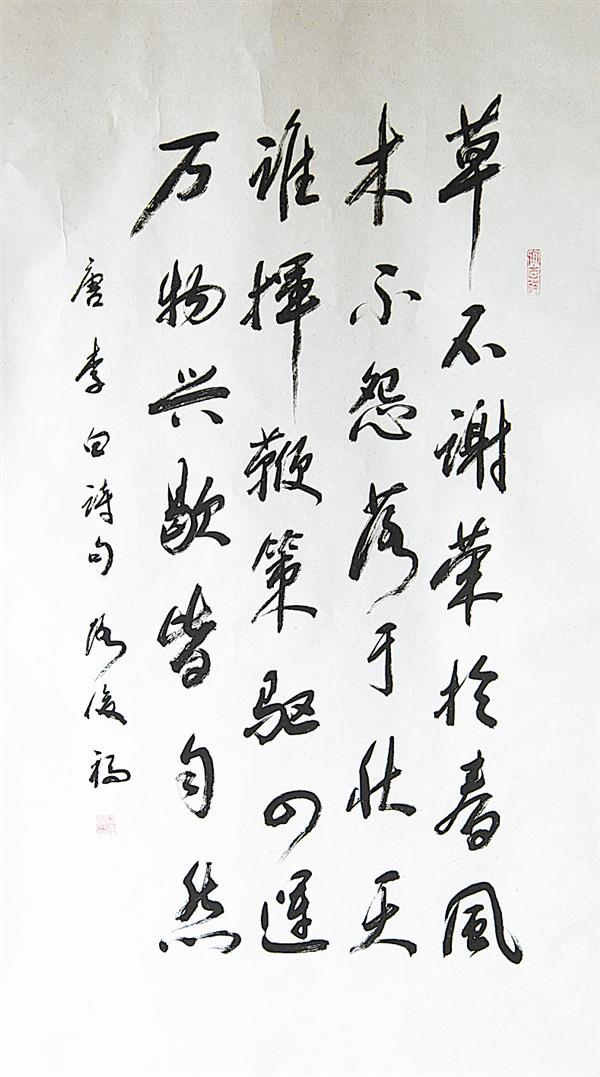 草不謝荣於春風
木不怨落于秋天
谁揮鞭策驱四運
万物兴歇皆自然
唐李白詩句 俊福